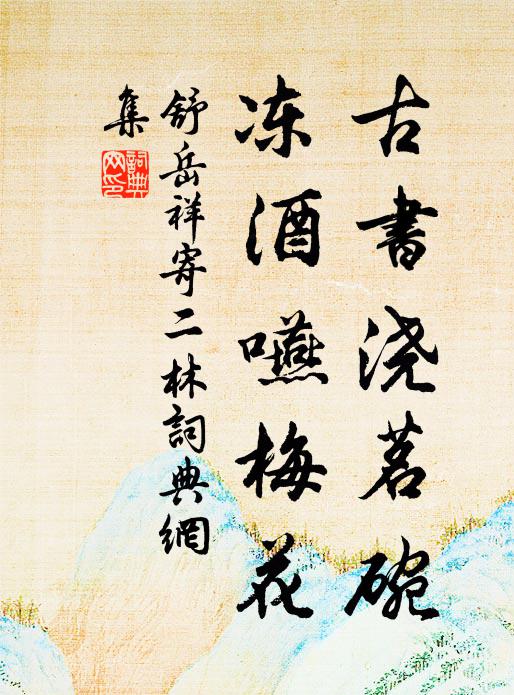 古書浇茗碗
冻酒嚥梅花
舒岳祥寄二林詞典網
集
詞典网印